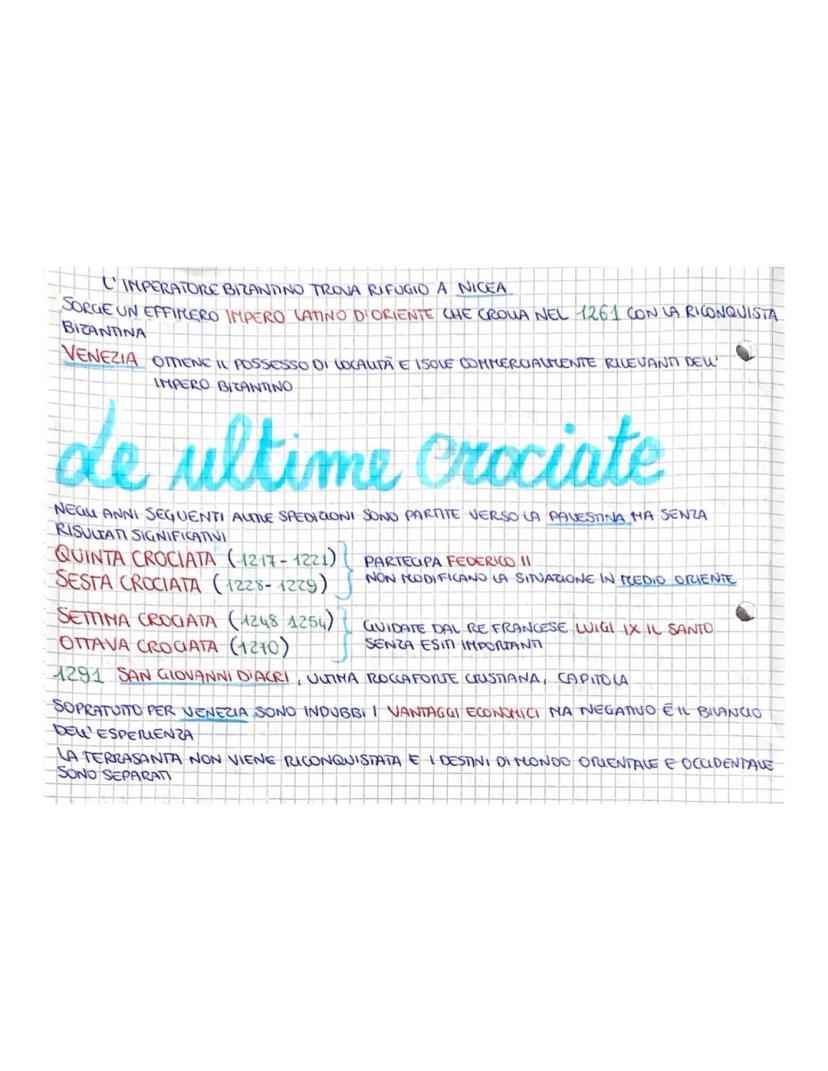 L'IMPERATORE BIZANTINO TROVA RIFUGIO A NICEA
SORGE UN EFFIMERO IMPERO LATINO D'ORIENTE CHE CROLLA NEL 1261 CON LA RICONQUISTA
BIZANTINA
VENEZIA OTTIENE IL POSSESSO DI LOCALITÀ E ISOLE COMMERCIALMENTE RILEVANTI DELL'
IMPERO BIZANTINO
Le ultime crociate
NEGLI ANNI SEGUENTI ALTRE SPEDIZIONI SONO PARTITE VERSO LA PALESTINA MA SENZA
RISULTATI SIGNIFICATIVI
QUINTA CROCIATA (1217-1221) PARTECIPA FEDERICO II
SESTA CROCIATA (1228-1229) NON MODIFICANO LA SITUAZIONE IN MEDIO ORIENTE
SETTIMA CROCIATA (1248 1254) GUIDATE DAL RE FRANCESE LUIGI IX IL SANTO
OTTAVA CROCIATA (1270) SENZA ESITI IMPORTANTI
1291 SAN GIOVANNI D'ACRI, ULTIMA ROCCAFORTE CRISTIANA, CAPITOLA
SOPRATUTTO PER VENEZIA SONO INDUBBI I VANTAGGI ECONOMICI MA NEGATIVO È IL BILANCIO
DELL'ESPERIENZA
LA TERRASANTA NON VIENE RICONQUISTATA E I DESTINI DI MONDO ORIENTALE E OCCIDENTALE
SONO SEPARATI